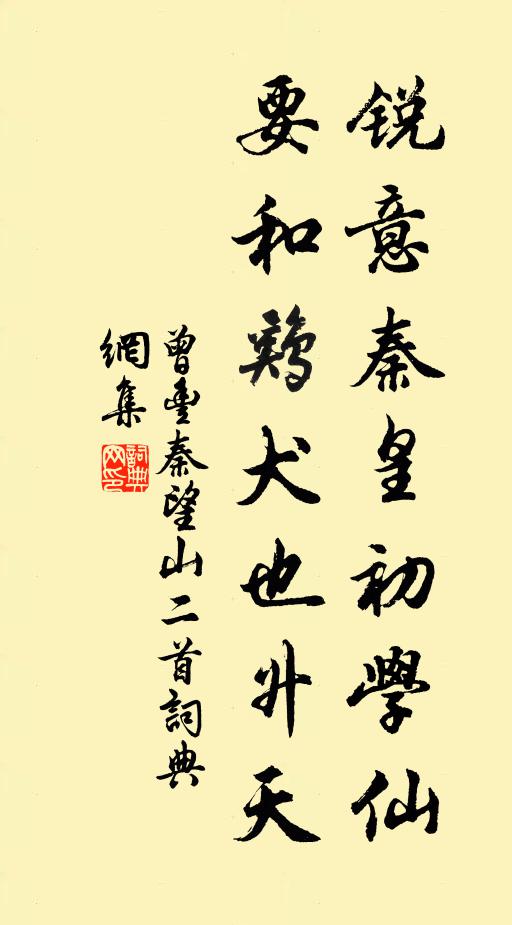 锐意秦皇初學仙
要和鷄犬也升天
曾豐秦望山二首詞典
網集
詞典網印